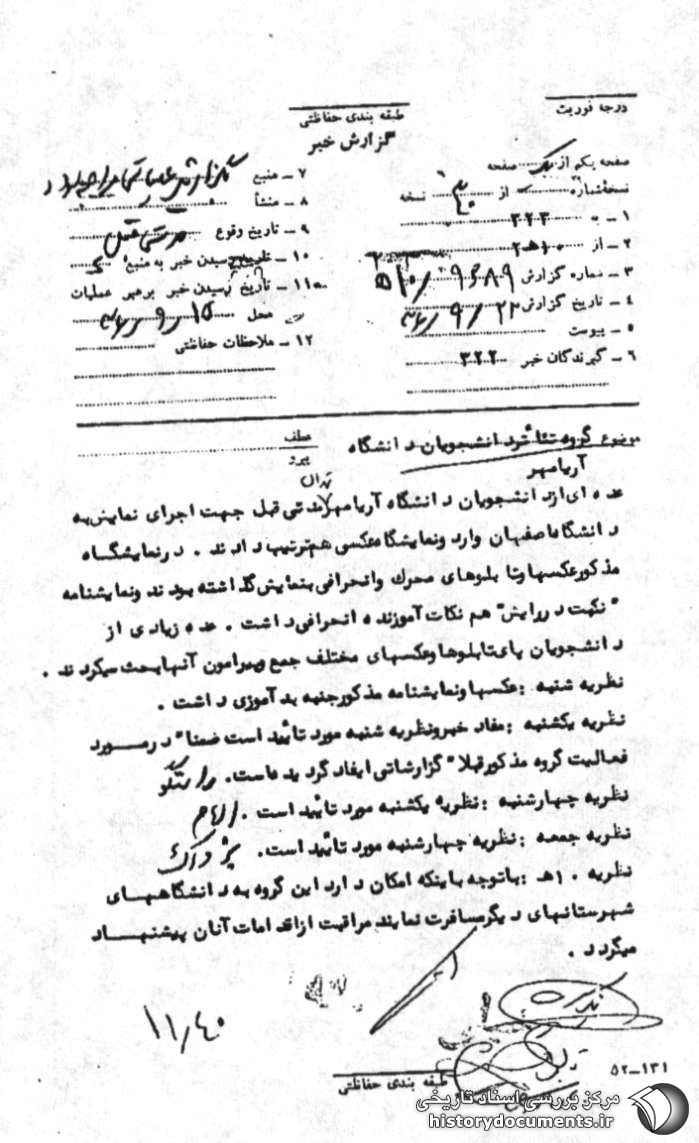 درجه فوریت
طبقه بندی حفاظتی
گزارش خبر
صفحه یکم از یک صفحه
نسخه شماره از نسخه
۱ ـ به ۳۲۳
۲ ـ از ۱۰ هـ ۲
۳ ـ شماره گزارش
۴ ـ تاریخ گزارش ۲۲ / ۹ / ۳۶
۵ ـ پیوست
۶ ـ گیرندگان خبر ۳۲۲
۷ ـ منبع
۸ ـ منشأ
۹ ـ تاریخ وقوع مدتی قبل
۱۰ ـ تاریخ رسیدن خبر به منبع
۱۱ ـ تاریخ رسیدن خبر برهبر عملیات
محل ۱۵ ر ۹ ر ۳۶
۱۲ ـ ملاحظات حفاظتی
موضوع گروه تئاتر دانشجویان دانشگاه
آریامهر
عطف
پیرو
تهران
عده ای از دانشجویان دانشگاه آریامهر مدتی قبل جهت اجرای نمایش به
دانشگاه اصفهان وارد و نمایشگاه عکسی هم ترتیب دادند . در نمایشگاه
مذکور عکسها و تابلوهای محرک و انحرافی بنمایش گذاشته بودند و نمایشنامه
"نکبت در رایش" هم نکات آموزنده انحرافی داشت . عده زیادی از
دانشجویان پای تابلوها و عکسهای مختلف جمع و پیرامون آنها بحث میکردند .
نظریه شنبه : عکسها و نمایشنامه مذکور جنبه بدآموزی داشت .
نظریه یکشنبه : مفاد خبر و نظریه شنبه مورد تائید است ضمنا" در مورد
فعالیت گروه مذکور قبلا" گزارشاتی ایفاد گردیده است.
نظریه چهارشنبه : نظریه یکشنبه مورد تائید است .
نظریه جمعه : نظریه چهارشنبه مورد تائید است. پژواک
نظریه ۱۰ هـ : باتوجه باینکه امکان دارد این گروه به دانشگاههای
شهرستانهای دیگر مسافرت نمایند مراقبت از اقدامات آنان پیشنهاد
میگردد .
۱۱/۴۰
۱۳۱ـ۵۲
طبقه بندی حفاظتی
مرکز بررسی اسناد تاریخی
historydocuments.ir